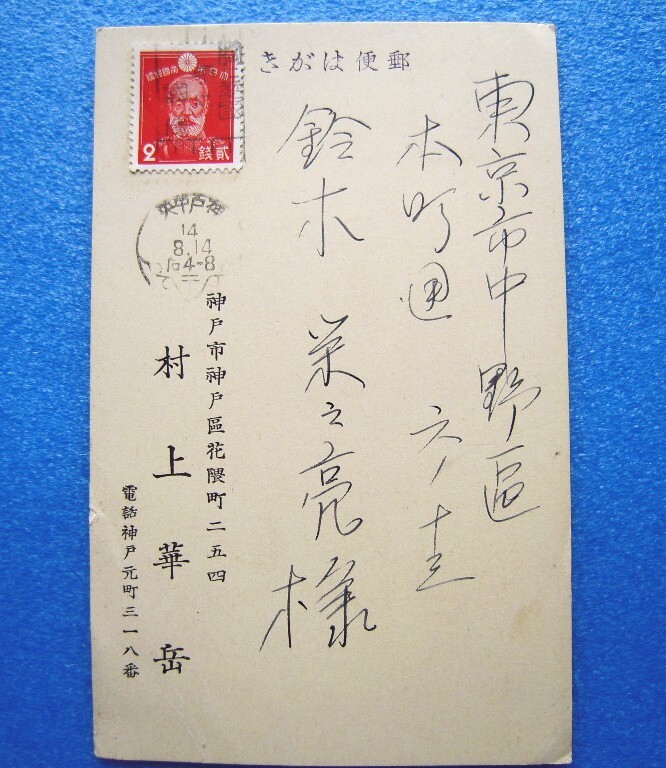 きがは便郵
大日本帝國郵便
2
貳錢
神戸中央
14
8.14
后4-8
東京市中野區
本町通 六ノ十三
鈴木 栄之亮様
神戸市神戸區花隈町二五四
村上華岳
電話神戸元町三一八番